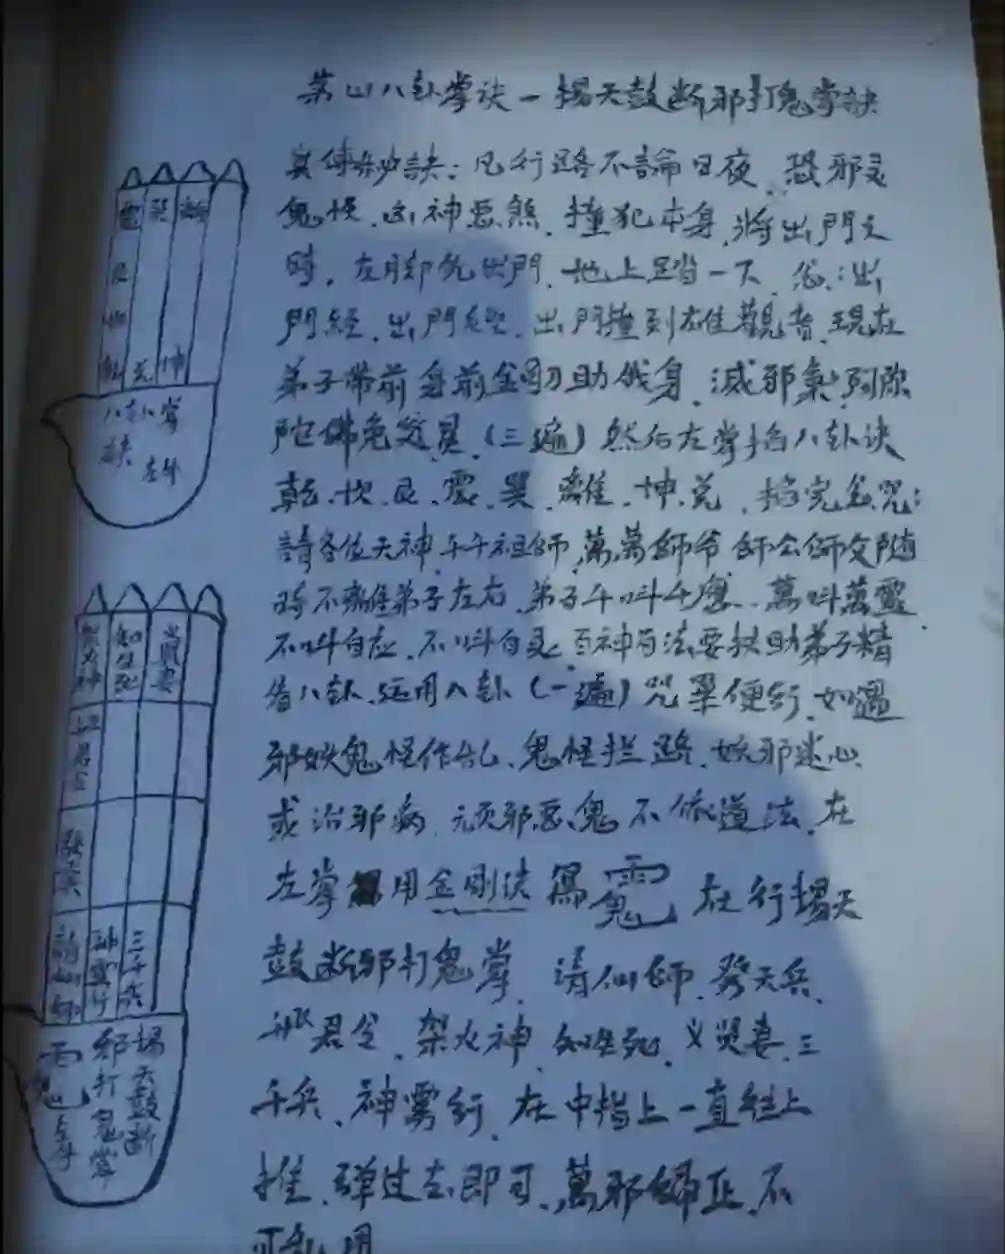 茅山八卦掌诀一揚天鼓断邪打鬼掌訣
真傳秘訣：凡行路不論日夜、恐邪灵
鬼怪、凶神惡煞、撞犯本身、將出門之
時、左脚先出門、地上踏一下、念：出
門經、出門經、出門撞到雄觀音、現在
弟子带前身前金剛助我身、滅邪氣、阿弥
陀佛（三遍）然后左掌掐八卦诀
乾、坎、艮、震、巽、離、坤、兑、掐完念咒：
請各位天神、千千祖師、萬萬師爷師公師父随
時不離弟子左右、弟子千叫千應、萬叫萬靈、
不叫自应、不叫自灵、百神百法要扶助弟子精
八卦、运用八卦（一遍）咒畢便行、如遇
邪妖鬼怪作乱、鬼怪拦路、妖邪迷心
或治邪病、顽邪惡鬼不依道法、在
左掌用金剛诀寫 在行揚天
鼓断邪打鬼掌、请仙師、發天兵、
君令、架火神、知生死、义贤妻、三
千兵、神雾行、在中指上一直往上
推、弹过去即可、萬邪歸正、不
可乱用
震 巽 離
艮
坎
乾 兑 坤
八卦掌
訣 左手
架火神 知生死 义贤妻
君令
發天兵
請仙師 神雾行 三千兵
揚天鼓断
邪打鬼掌
左手